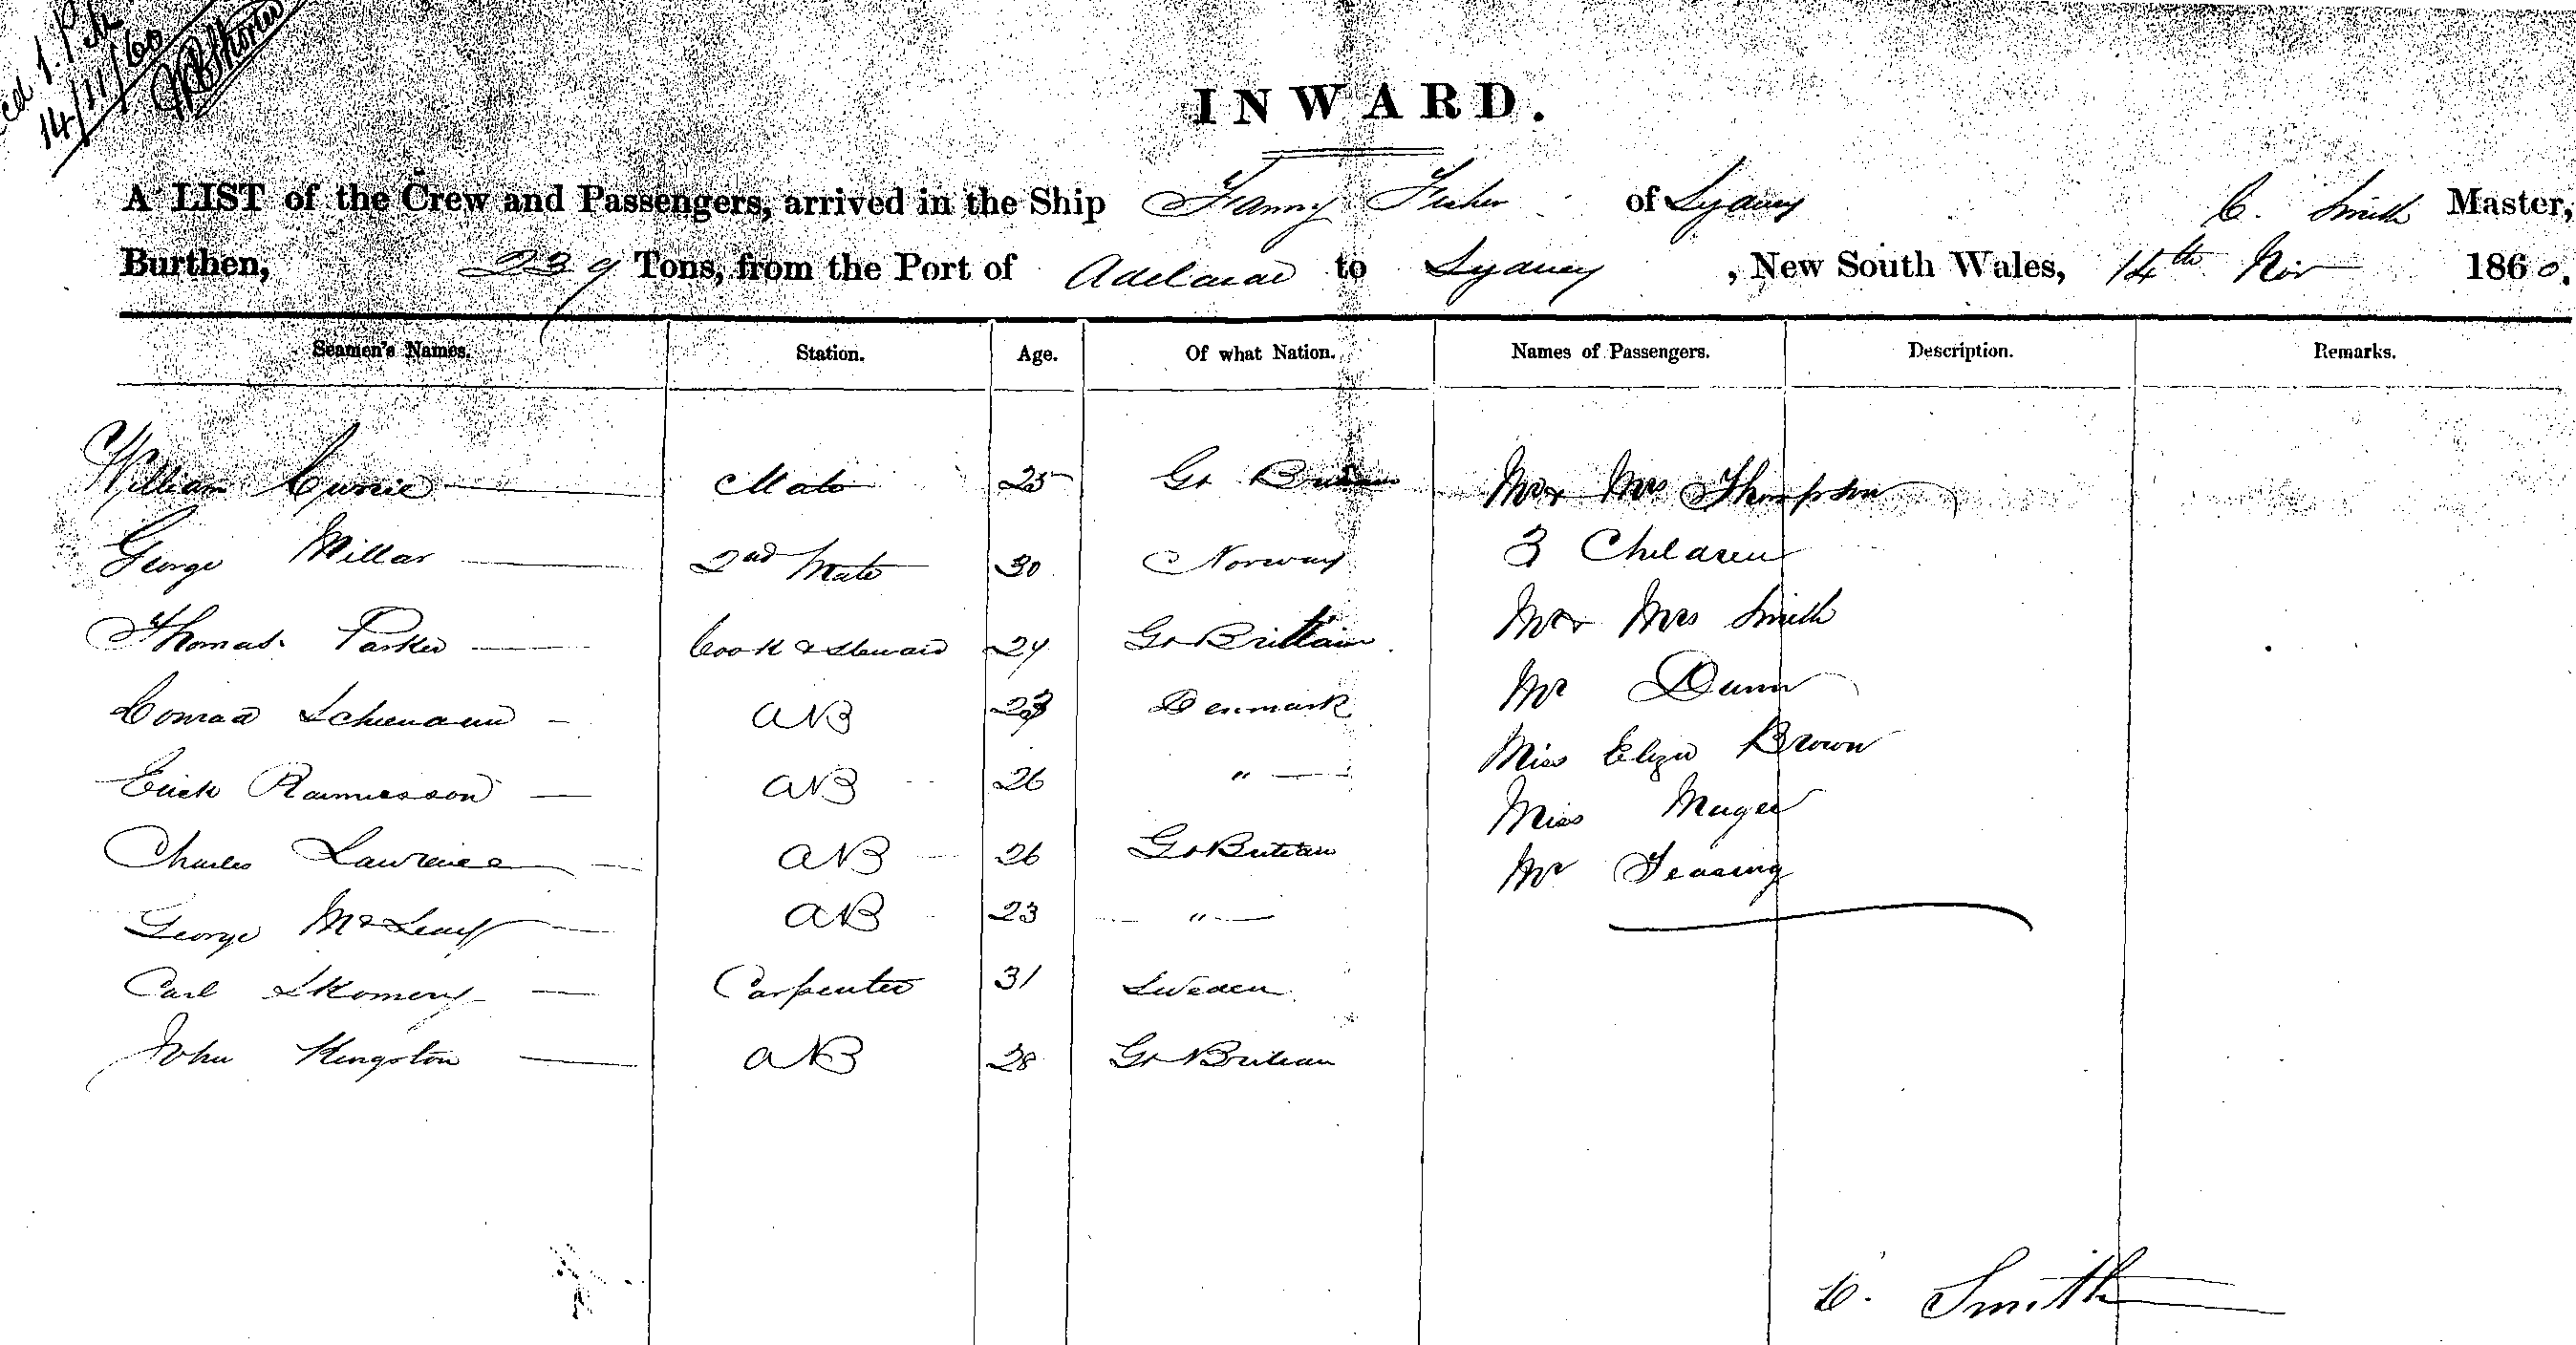 14/11/60
INWARD.
A LIST of the Crew and Passengers, arrived in the Ship Fanny Fisher of Sydney C. Smith Master,
Burthen, 239 Tons, from the Port of Adelaide to Sydney, New South Wales, 14th Nov 1860.
Seamen's Names. Station. Age. Of what Nation. Names of Passengers. Description. Remarks.
William Currie Mate 25 Gt Britain Mr & Mrs Thompson
George Millar 2nd Mate 30 Norway 3 Children
Thomas Parker Cook & Steward 24 Gt Brittain Mr & Mrs Smith
Conrad AB 23 Denmark Mr Dunn
Erick Ramusson AB 26 " Miss Eliza Brown
Charles Lawrence AB 26 Gt Britain Miss
George AB 23 " Mr
Carl Carpenter 31 Sweden
John Kingston AB 28 Gt Britain
C. Smith